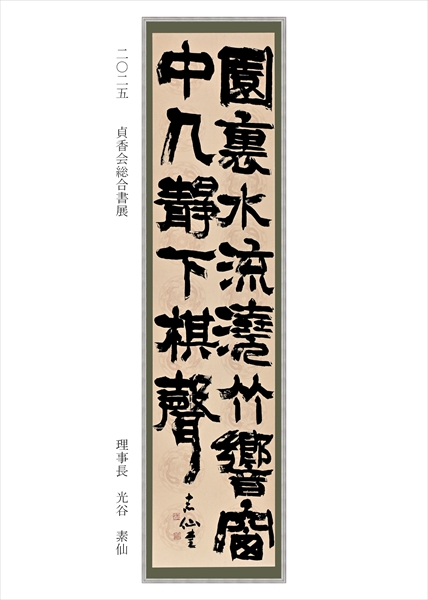 園裏水流澆竹響窗
中人靜下棋聲
素仙書
二〇二五 貞香会総合書展
理事長 光谷 素仙